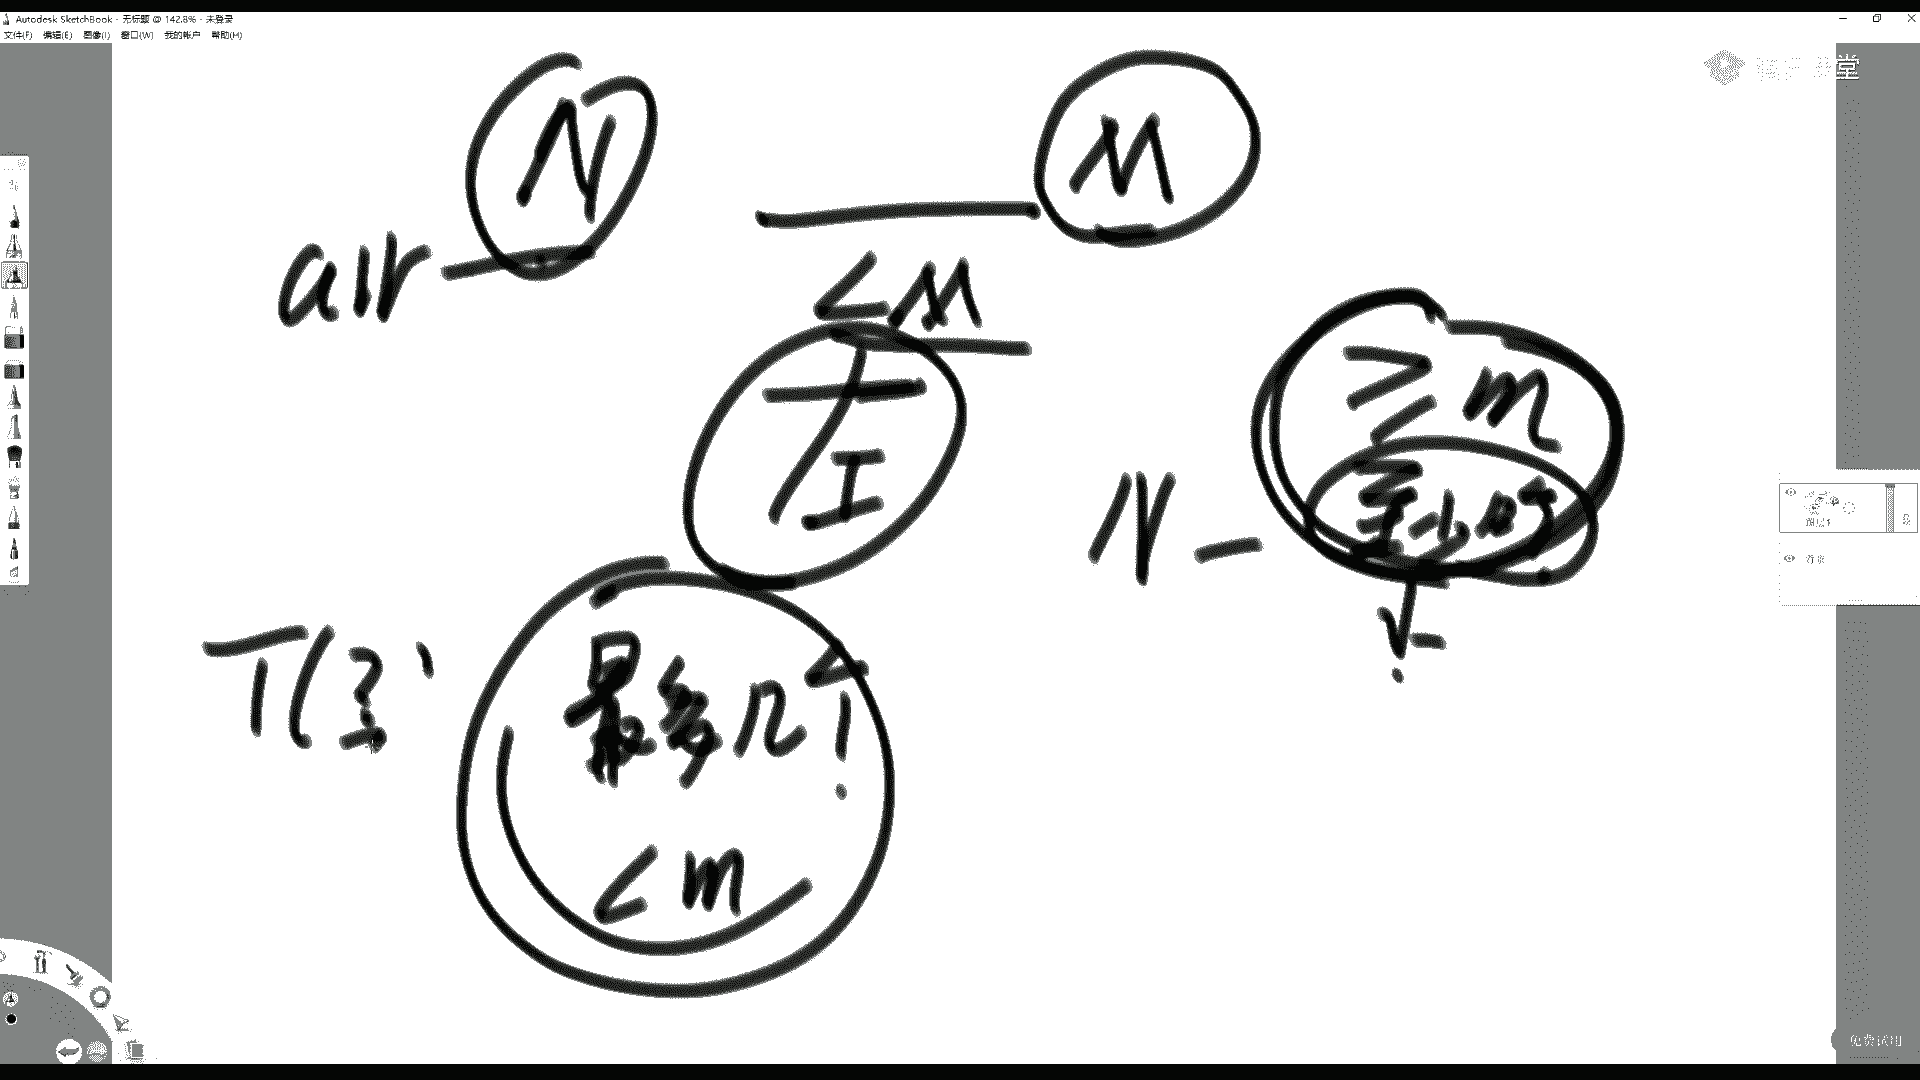 Autodesk SketchBook - 无标题 @ 142.8% - 未登录
文件(F) 编辑(E) 图像(I) 窗口(W) 我的帐户 帮助(H)
堂
N
M
arr
<M
左
≥m
至少
N -
T(
最多几
<m
免费试用